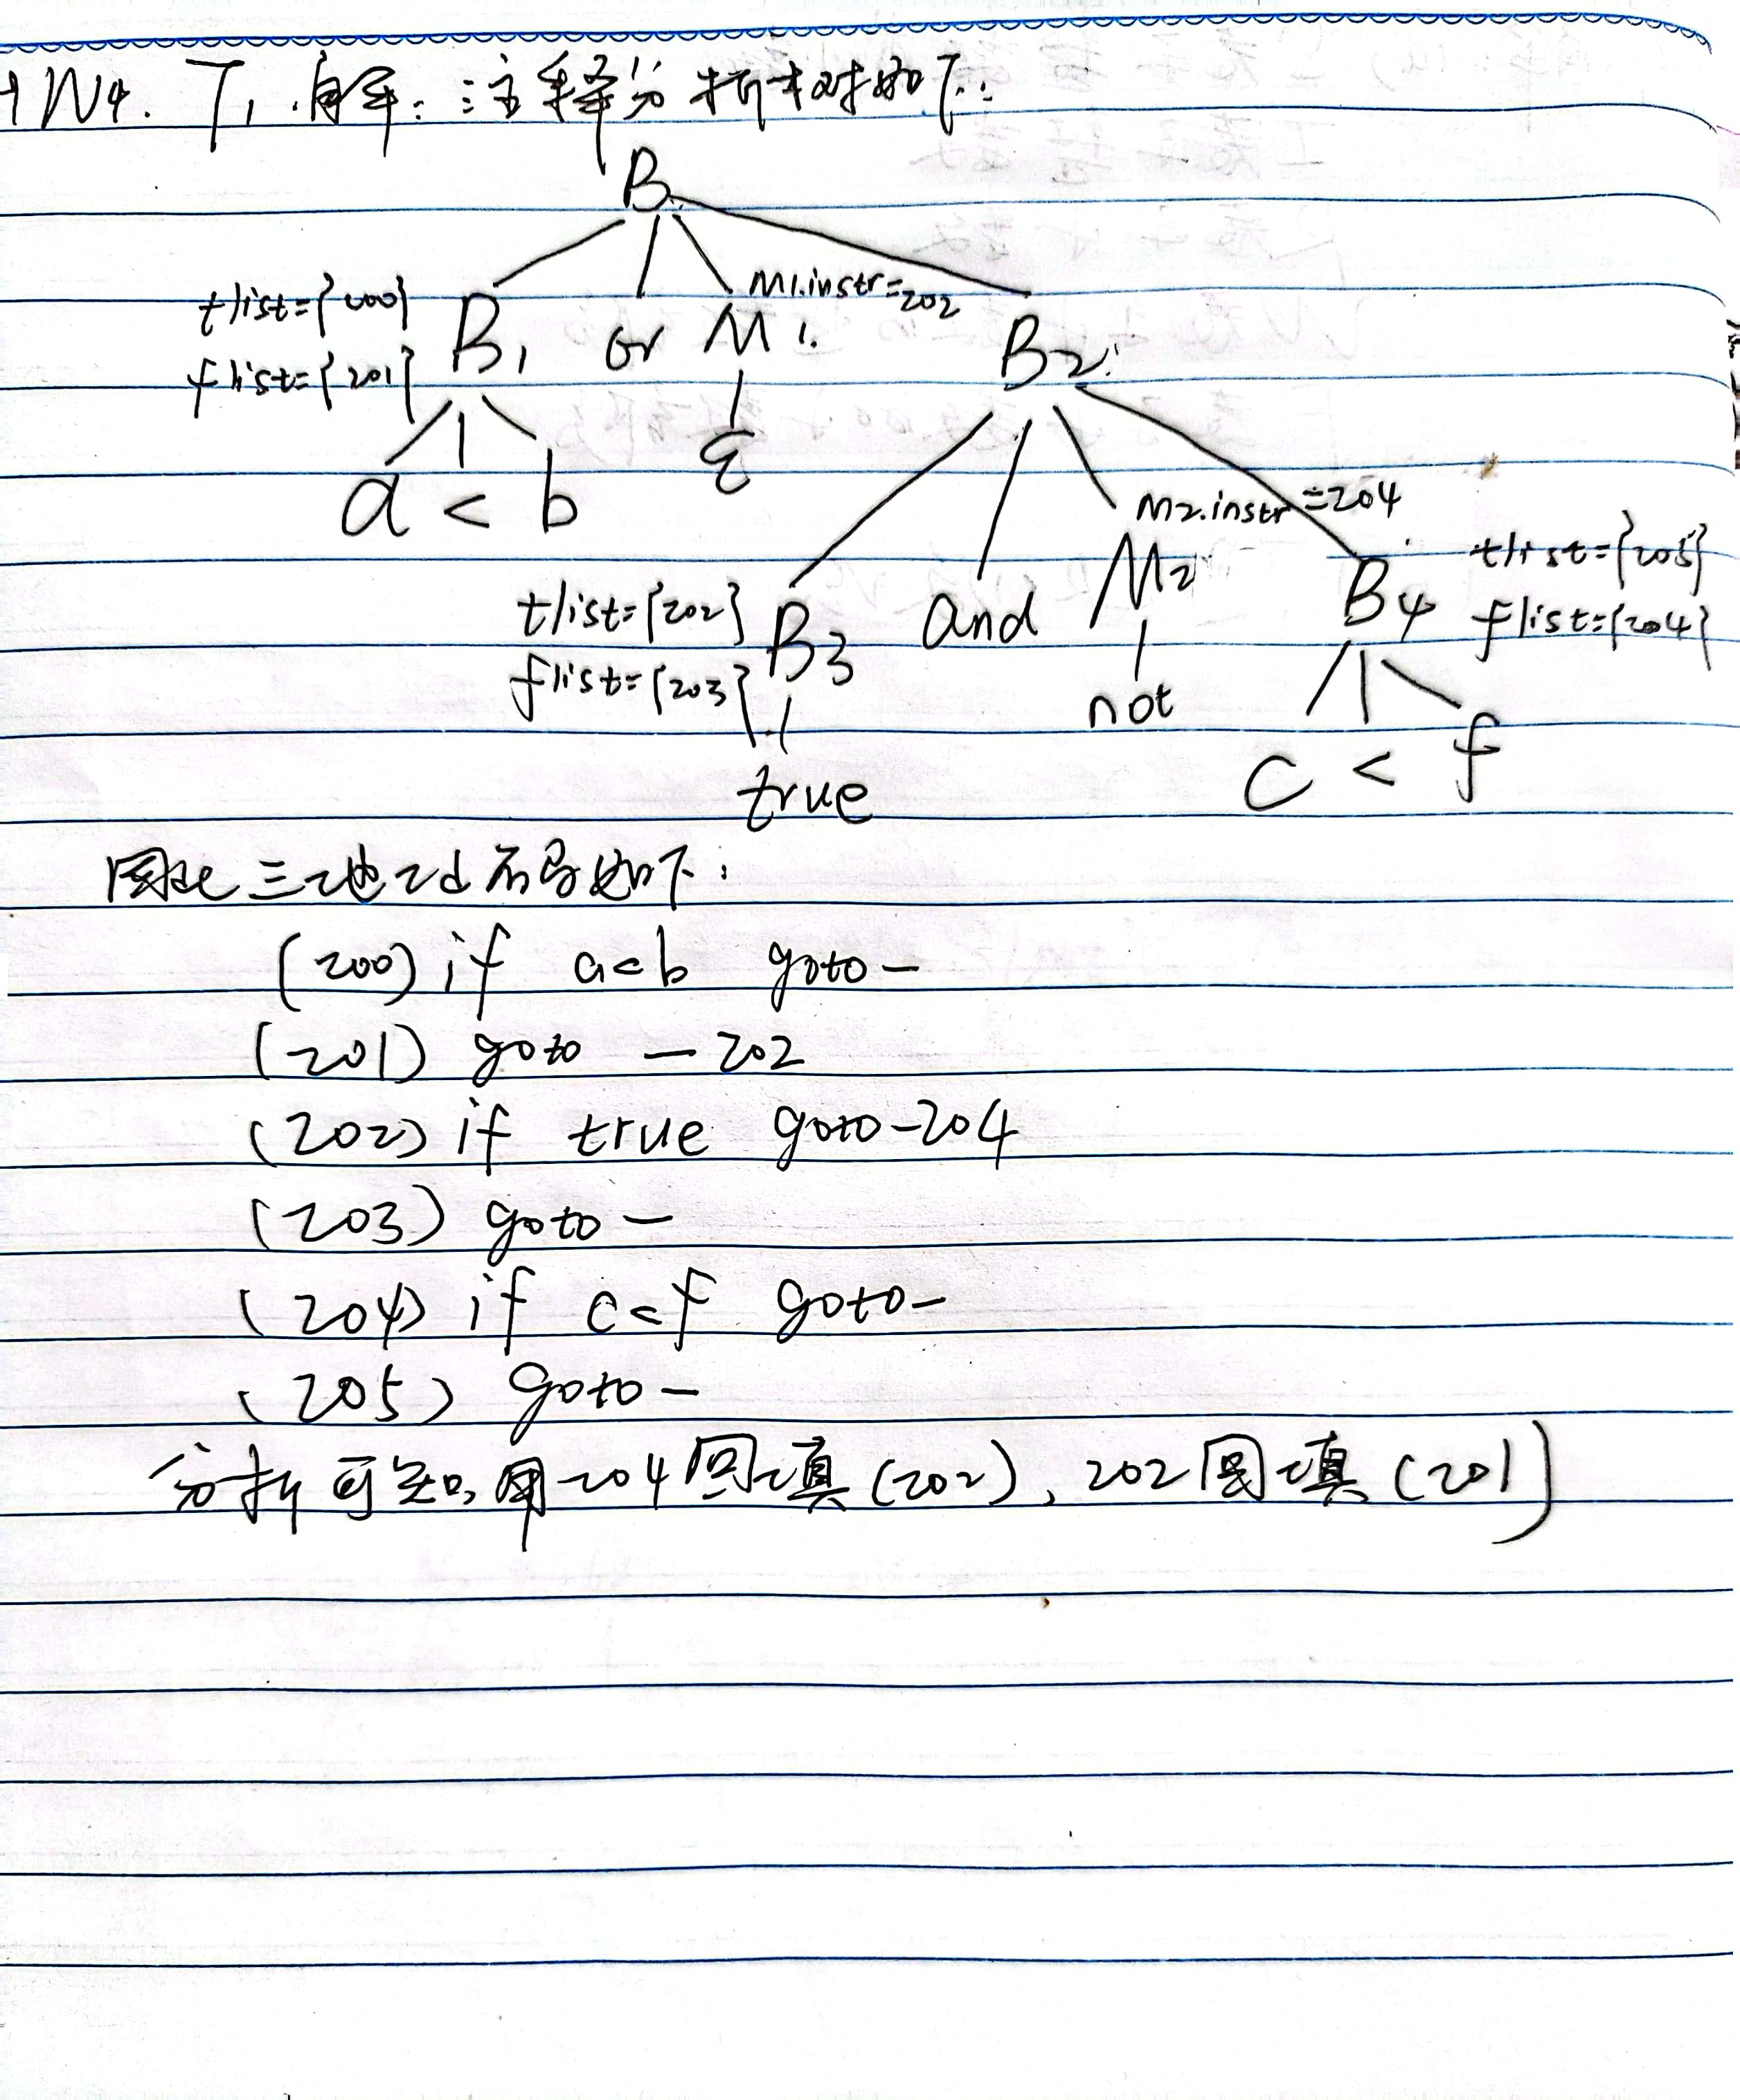 HW4. T1. 解: 注释分析树如下:
B
tlist={200} M1.instr=202
flist={201} B1 or M1 B2
a < b ε
M2.instr=204
tlist={202} B3 and M2 B4 tlist={205}
flist={203} flist={204}
true not c < f
因此三地址码如下:
(200) if a<b goto —
(201) goto — 202
(202) if true goto — 204
(203) goto —
(204) if c<f goto —
(205) goto —
分析可知,用204回填(202), 202回填(201)